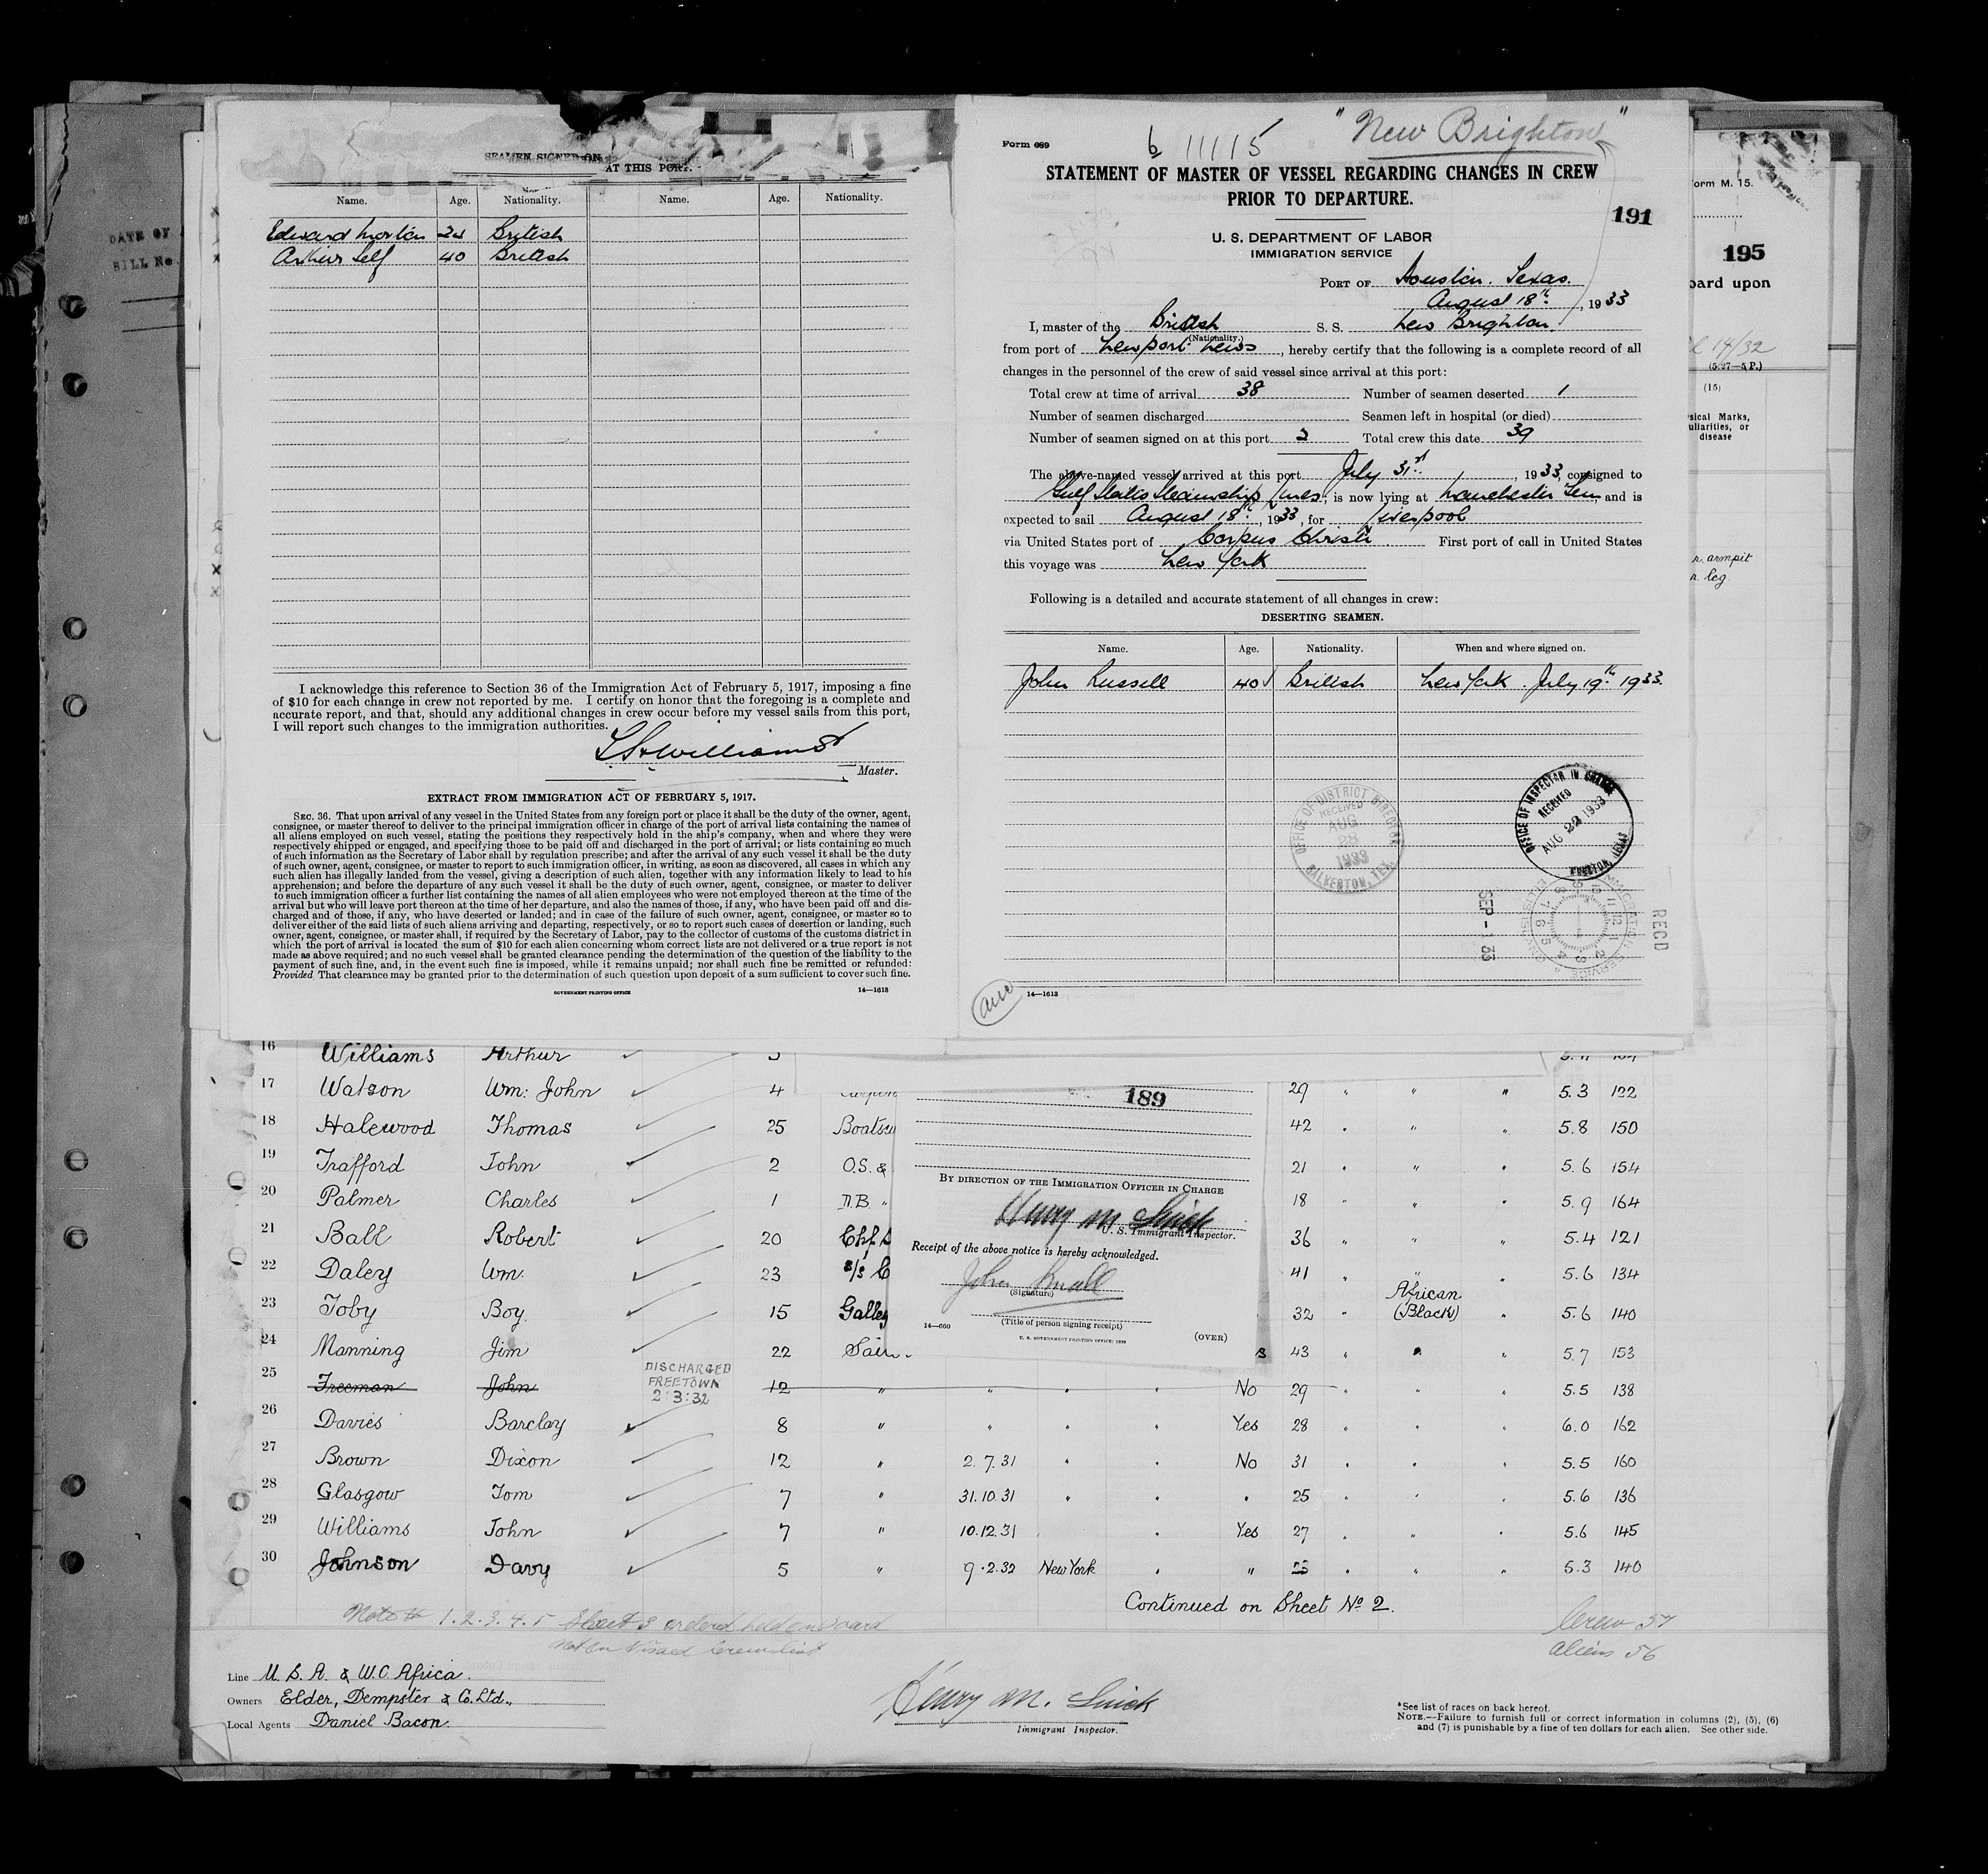 DATE OF
BILL No.
SEAMEN SIGNED ON
AT THIS PORT.
Name. Age. Nationality. Name. Age. Nationality.
Edward Morton 24 British
Arthur Self 40 British
I acknowledge this reference to Section 36 of the Immigration Act of February 5, 1917, imposing a fine
of $10 for each change in crew not reported by me. I certify on honor that the foregoing is a complete and
accurate report, and that, should any additional changes in crew occur before my vessel sails from this port,
I will report such changes to the immigration authorities.
Williams
Master.
EXTRACT FROM IMMIGRATION ACT OF FEBRUARY 5, 1917.
SEC. 36. That upon arrival of any vessel in the United States from any foreign port or place it shall be the duty of the owner, agent,
consignee, or master thereof to deliver to the principal immigration officer in charge of the port of arrival lists containing the names of
all aliens employed on such vessel, stating the positions they respectively hold in the ship's company, when and where they were
respectively shipped or engaged, and specifying those to be paid off and discharged in the port of arrival; or lists containing so much
of such information as the Secretary of Labor shall by regulation prescribe; and after the arrival of any such vessel it shall be the duty
of such owner, agent, consignee, or master to report to such immigration officer, in writing, as soon as discovered, all cases in which any
such alien has illegally landed from the vessel, giving a description of such alien, together with any information likely to lead to his
apprehension; and before the departure of any such vessel it shall be the duty of such owner, agent, consignee, or master to deliver
to such immigration officer a further list containing the names of all alien employees who were not employed thereon at the time of the
arrival but who will leave port thereon at the time of her departure, and also the names of those, if any, who have been paid off and dis-
charged and of those, if any, who have deserted or landed; and in case of the failure of such owner, agent, consignee, or master so to
deliver either of the said lists of such aliens arriving and departing, respectively, or so to report such cases of desertion or landing, such
owner, agent, consignee, or master, shall, if required by the Secretary of Labor, pay to the collector of customs of the customs district in
which the port of arrival is located the sum of $10 for each alien concerning whom correct lists are not delivered or a true report is not
made as above required; and no such vessel shall be granted clearance pending the determination of the question of the liability to the
payment of such fine, and, in the event such fine is imposed, while it remains unpaid; nor shall such fine be remitted or refunded:
Provided, That clearance may be granted prior to the determination of such question upon deposit of a sum sufficient to cover such fine.
GOVERNMENT PRINTING OFFICE 14—1613
Form 689
6 11115 "New Brighton"
STATEMENT OF MASTER OF VESSEL REGARDING CHANGES IN CREW
PRIOR TO DEPARTURE.
191
U. S. DEPARTMENT OF LABOR
IMMIGRATION SERVICE
PORT OF Houston. Texas.
August 18th, 1933
I, master of the British S. S. New Brighton
(Nationality.)
from port of Newport News, hereby certify that the following is a complete record of all
changes in the personnel of the crew of said vessel since arrival at this port:
Total crew at time of arrival 38 Number of seamen deserted 1
Number of seamen discharged Seamen left in hospital (or died)
Number of seamen signed on at this port 2 Total crew this date 39
The above-named vessel arrived at this port July 31st, 1933, consigned to
Gulf States Steamship Lines, is now lying at Manchester Term, and is
expected to sail August 18th, 1933, for Liverpool
via United States port of Corpus Christi First port of call in United States
this voyage was New York
Following is a detailed and accurate statement of all changes in crew:
DESERTING SEAMEN.
Name. Age. Nationality. When and where signed on.
John Russell 40 British New York. July 19th 1933.
OFFICE OF DISTRICT DIRECTOR
RECEIVED
AUG
28
1933
GALVESTON, TEX.
OFFICE OF INSPECTOR IN CHARGE
RECEIVED
AUG 22 1933
HOUSTON, TEXAS
SEP - 1 33
IMMIGRATION SERVICE
RECD
14—1613
Form M. 15.
195
board upon
14/32
(5-27—5 P.)
(15)
Physical Marks,
Peculiarities, or
disease
armpit
leg.
16 Williams Arthur
17 Watson Wm: John 4 29 " " " 5.3 122
18 Halewood Thomas 25 Boatsw 42 " " " 5.8 150
19 Trafford John 2 O.S. & 21 " " " 5.6 154
20 Palmer Charles 1 18 " " " 5.9 164
21 Ball Robert 20 36 " " " 5.4 121
22 Daley Wm. 23 41 " " " 5.6 134
23 Toby Boy. 15 Galley 32 " African (Black) " 5.6 140
24 Manning Jim 22 43 " " " 5.7 153
25 Freeman John DISCHARGED FREETOWN 2:3:32 12 " " " " No 29 " " " 5.5 138
26 Davies Barclay 8 " " " " Yes 28 " " " 6.0 162
27 Brown Dixon 12 " 2.7.31 " " No 31 " " " 5.5 160
28 Glasgow Tom 7 " 31.10.31 " " " 25 " " " 5.6 136
29 Williams John 7 " 10.12.31 " Yes 27 " " " 5.6 145
30 Johnson Davy 5 " 9.2.32 New York " " 23 " " " 5.3 140
189
BY DIRECTION OF THE IMMIGRATION OFFICER IN CHARGE
Henry M Smick
U. S. Immigrant Inspector.
Receipt of the above notice is hereby acknowledged.
John
(Signature)
(Title of person signing receipt)
14—660
U. S. GOVERNMENT PRINTING OFFICE: 1930
(OVER)
Continued on Sheet No 2.
1.2.3.4.5 Sheet 3 ordered held on board
Not on Visaed Crewlist
Crew 57
aliens 56
Line U.S.A. & W.C. Africa.
Owners Elder, Dempster & Co. Ltd.,
Local Agents Daniel Bacon.
Henry M. Smick
Immigrant Inspector.
*See list of races on back hereof.
NOTE.—Failure to furnish full or correct information in columns (2), (5), (6)
and (7) is punishable by a fine of ten dollars for each alien. See other side.